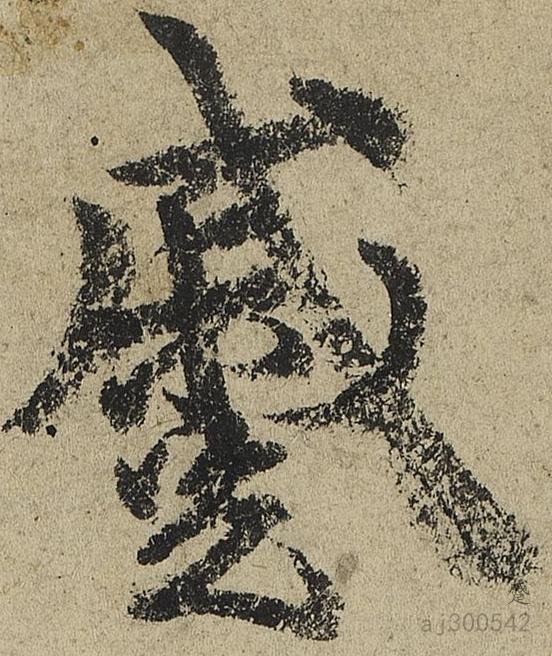 蹙
aj300542